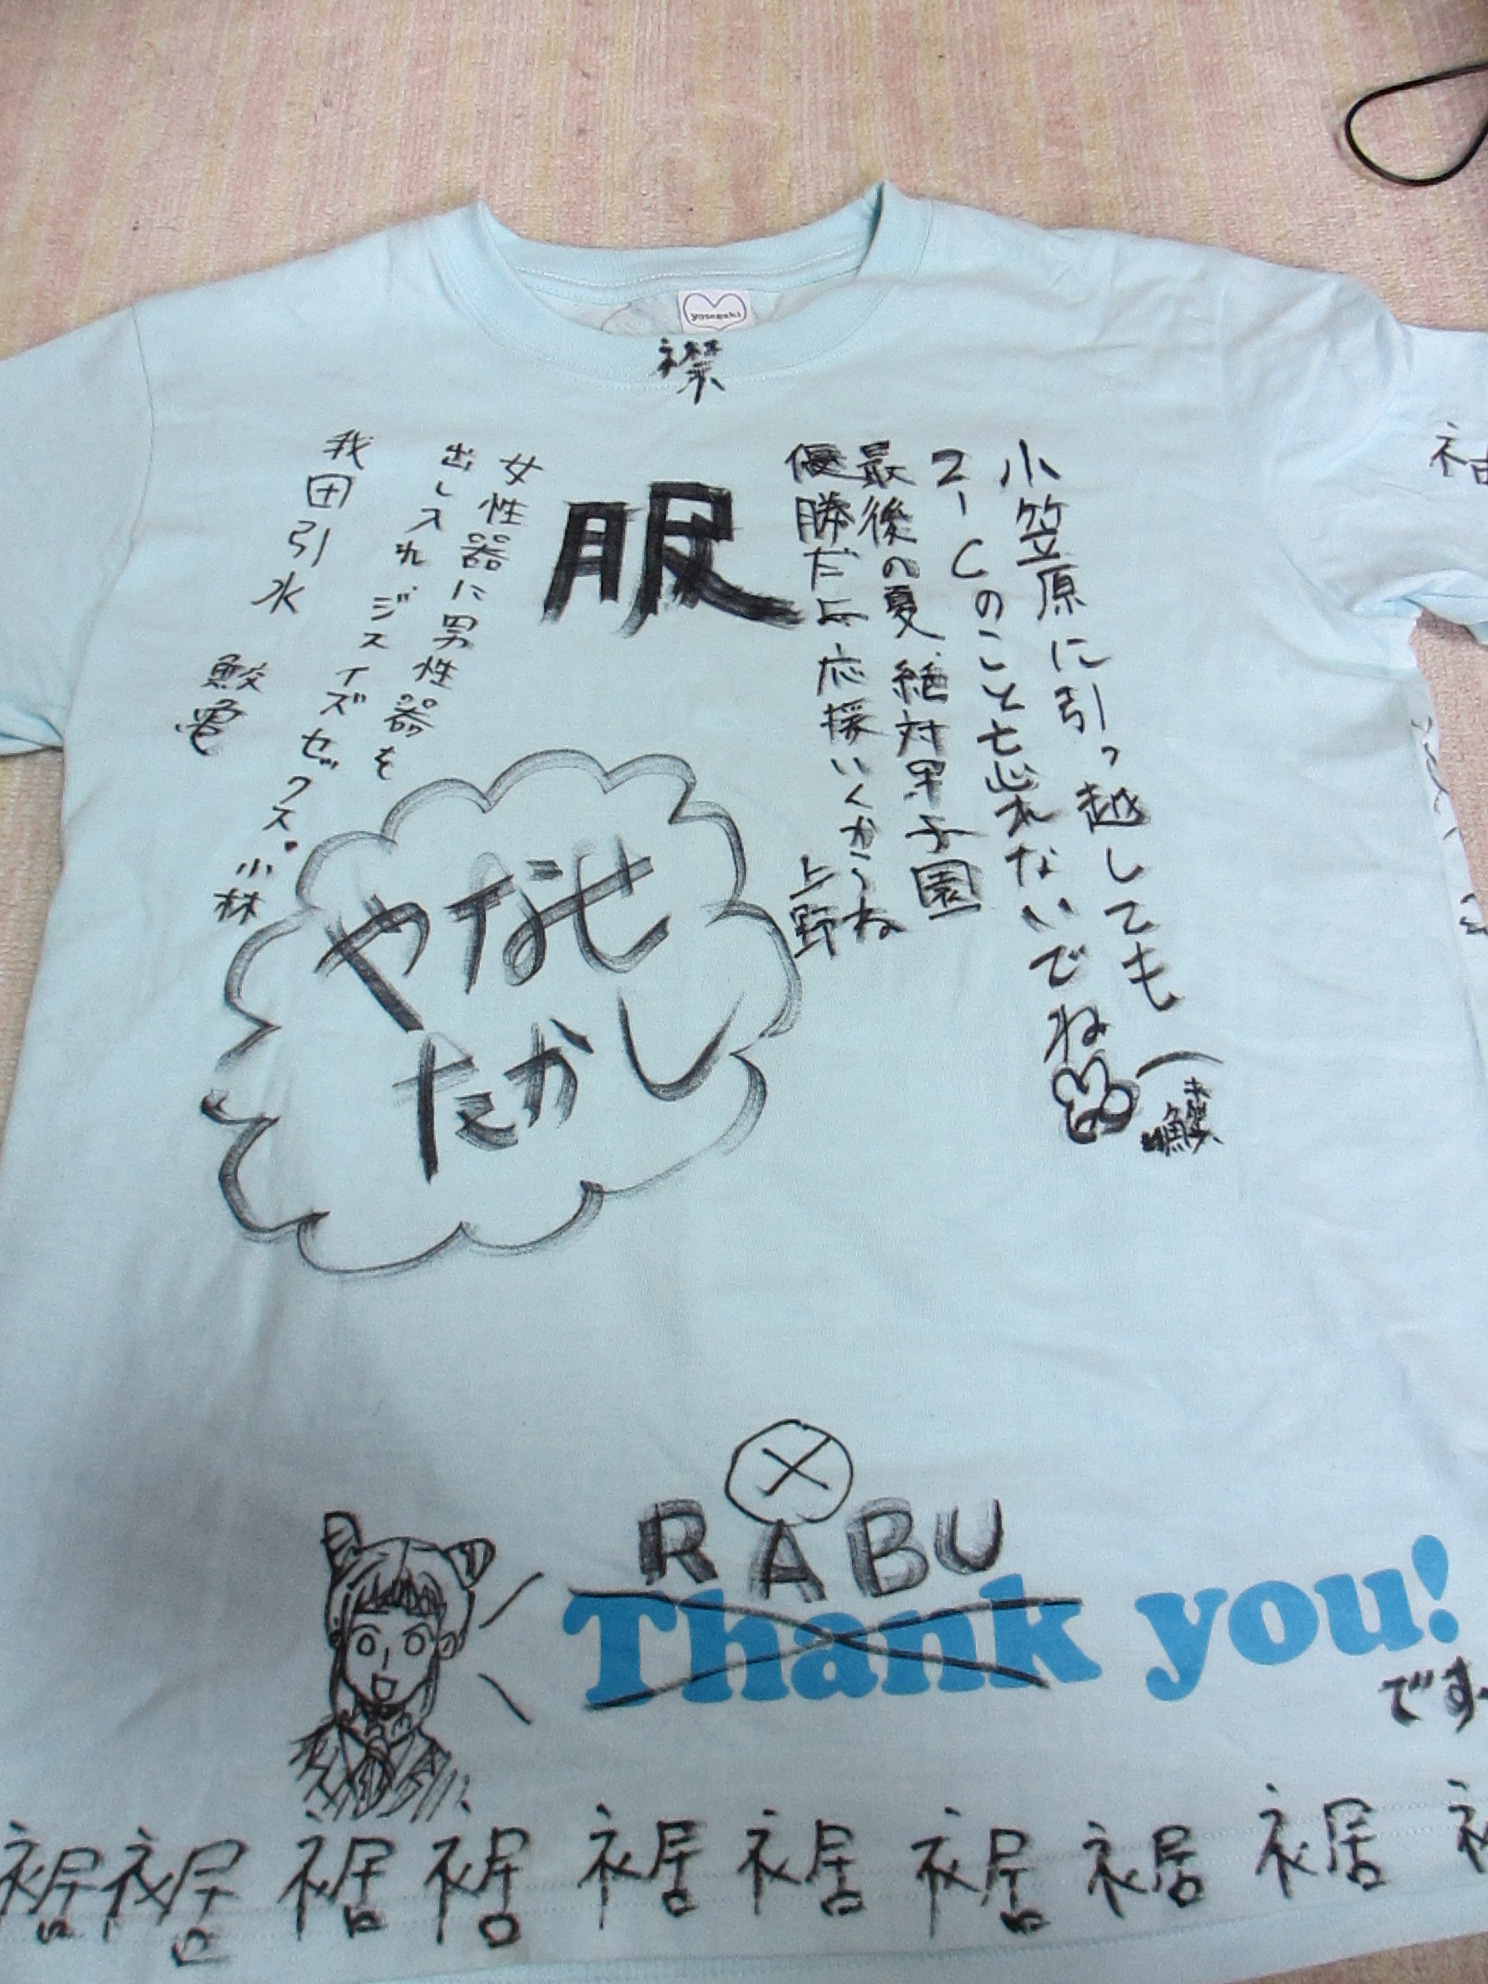 yosegaki
襟
服
小笠原に引っ越しても
2-Cのこと忘れないでね
最後の夏、絶対甲子園
優勝だよ応援いくからね
上野
女性器に男性器を
出し入れジスイズセックス。小林
我田引水
やなせ
たかし
RABU
Thank you!
です
裾 裾 裾 裾 裾 裾 裾 裾 裾